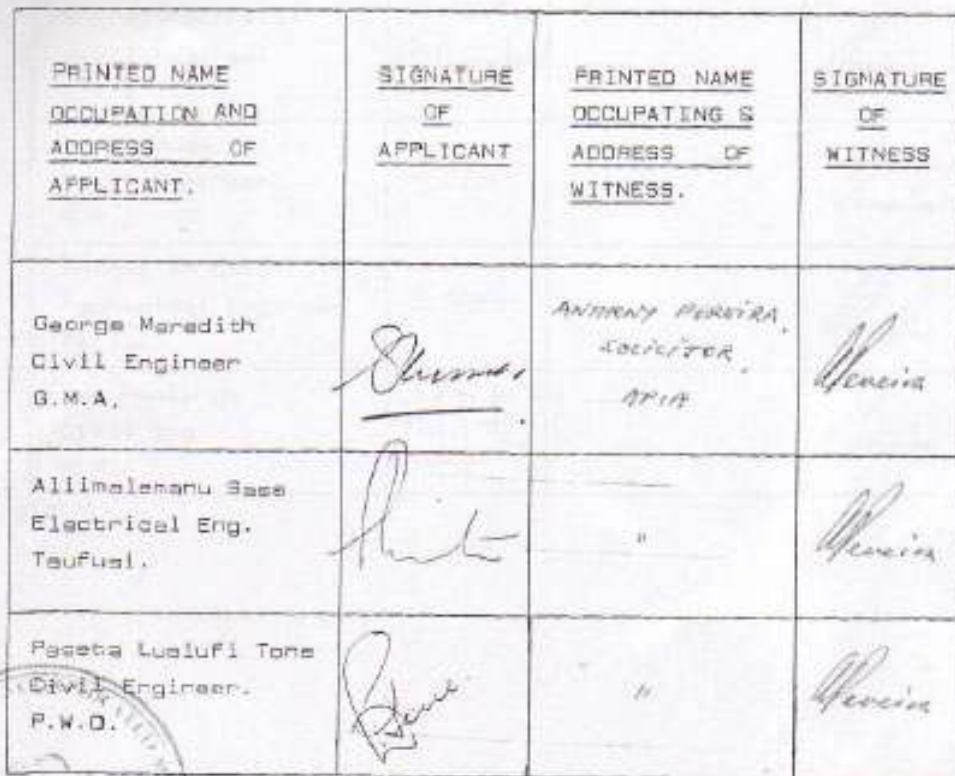 PRINTED NAME
OCCUPATION AND
ADDRESS OF
APPLICANT.
SIGNATURE
OF
APPLICANT
PRINTED NAME
OCCUPATING &
ADDRESS OF
WITNESS.
SIGNATURE
OF
WITNESS
George Meredith
Civil Engineer
G.M.A.
ANTHONY PEREIRA,
SOLICITOR,
APIA
Pereira
Aliimalemanu Sasa
Electrical Eng.
Taufusi.
"
Pereira
Paseta Lualufi Tone
Civil Engineer.
P.W.D.
"
Pereira